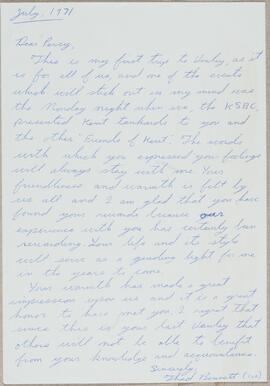 July, 1971
Dear Percy,
This is my first trip to Varley, as it
is for all of us, and one of the events
which will stick out in my mind was
the Monday night when we, the KSBC,
presented Kent tankards to you and
the other "Friends of Kent". The words
with which you expressed your feelings
will always stay with me. Your
friendliness and warmth is felt by
us all and I am glad that you have
found your rewards because our
experience with you has certainly been
rewarding. Your life and its style
will serve as a guiding light for me
in the years to come.
Your warmth has made a great
impression upon us and it is a great
honor to have met you. I regret that
since this is your last Varley that
others will not be able to benefit
from your knowledge and acquaintance.
Sincerely,
Thad Bennett